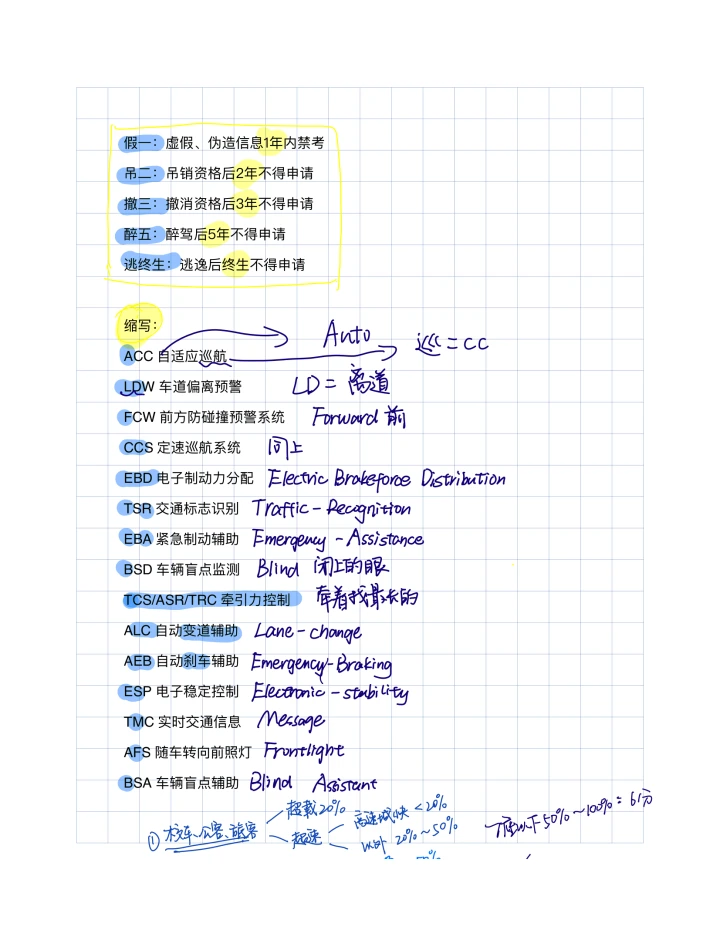 假一：虚假、伪造信息1年内禁考
吊二：吊销资格后2年不得申请
撤三：撤消资格后3年不得申请
醉五：醉驾后5年不得申请
逃终生：逃逸后终生不得申请
缩写：
ACC 自适应巡航 Auto 巡 = CC
LDW 车道偏离预警 LD = 离道
FCW 前方防碰撞预警系统 Forward 前
CCS 定速巡航系统 同上
EBD 电子制动力分配 Electric Brakeforce Distribution
TSR 交通标志识别 Traffic - Recognition
EBA 紧急制动辅助 Emergency - Assistance
BSD 车辆盲点监测 Blind 闭上的眼
TCS/ASR/TRC 牵引力控制 牵着找最长的
ALC 自动变道辅助 Lane - change
AEB 自动刹车辅助 Emergency-Braking
ESP 电子稳定控制 Electronic - stability
TMC 实时交通信息 Message
AFS 随车转向前照灯 Frontlight
BSA 车辆盲点辅助 Blind Assistant
① 校车、公客、旅客 超载20% 高速城快 <20% 以下50%~100%：6分
超速 以外 20%~50%